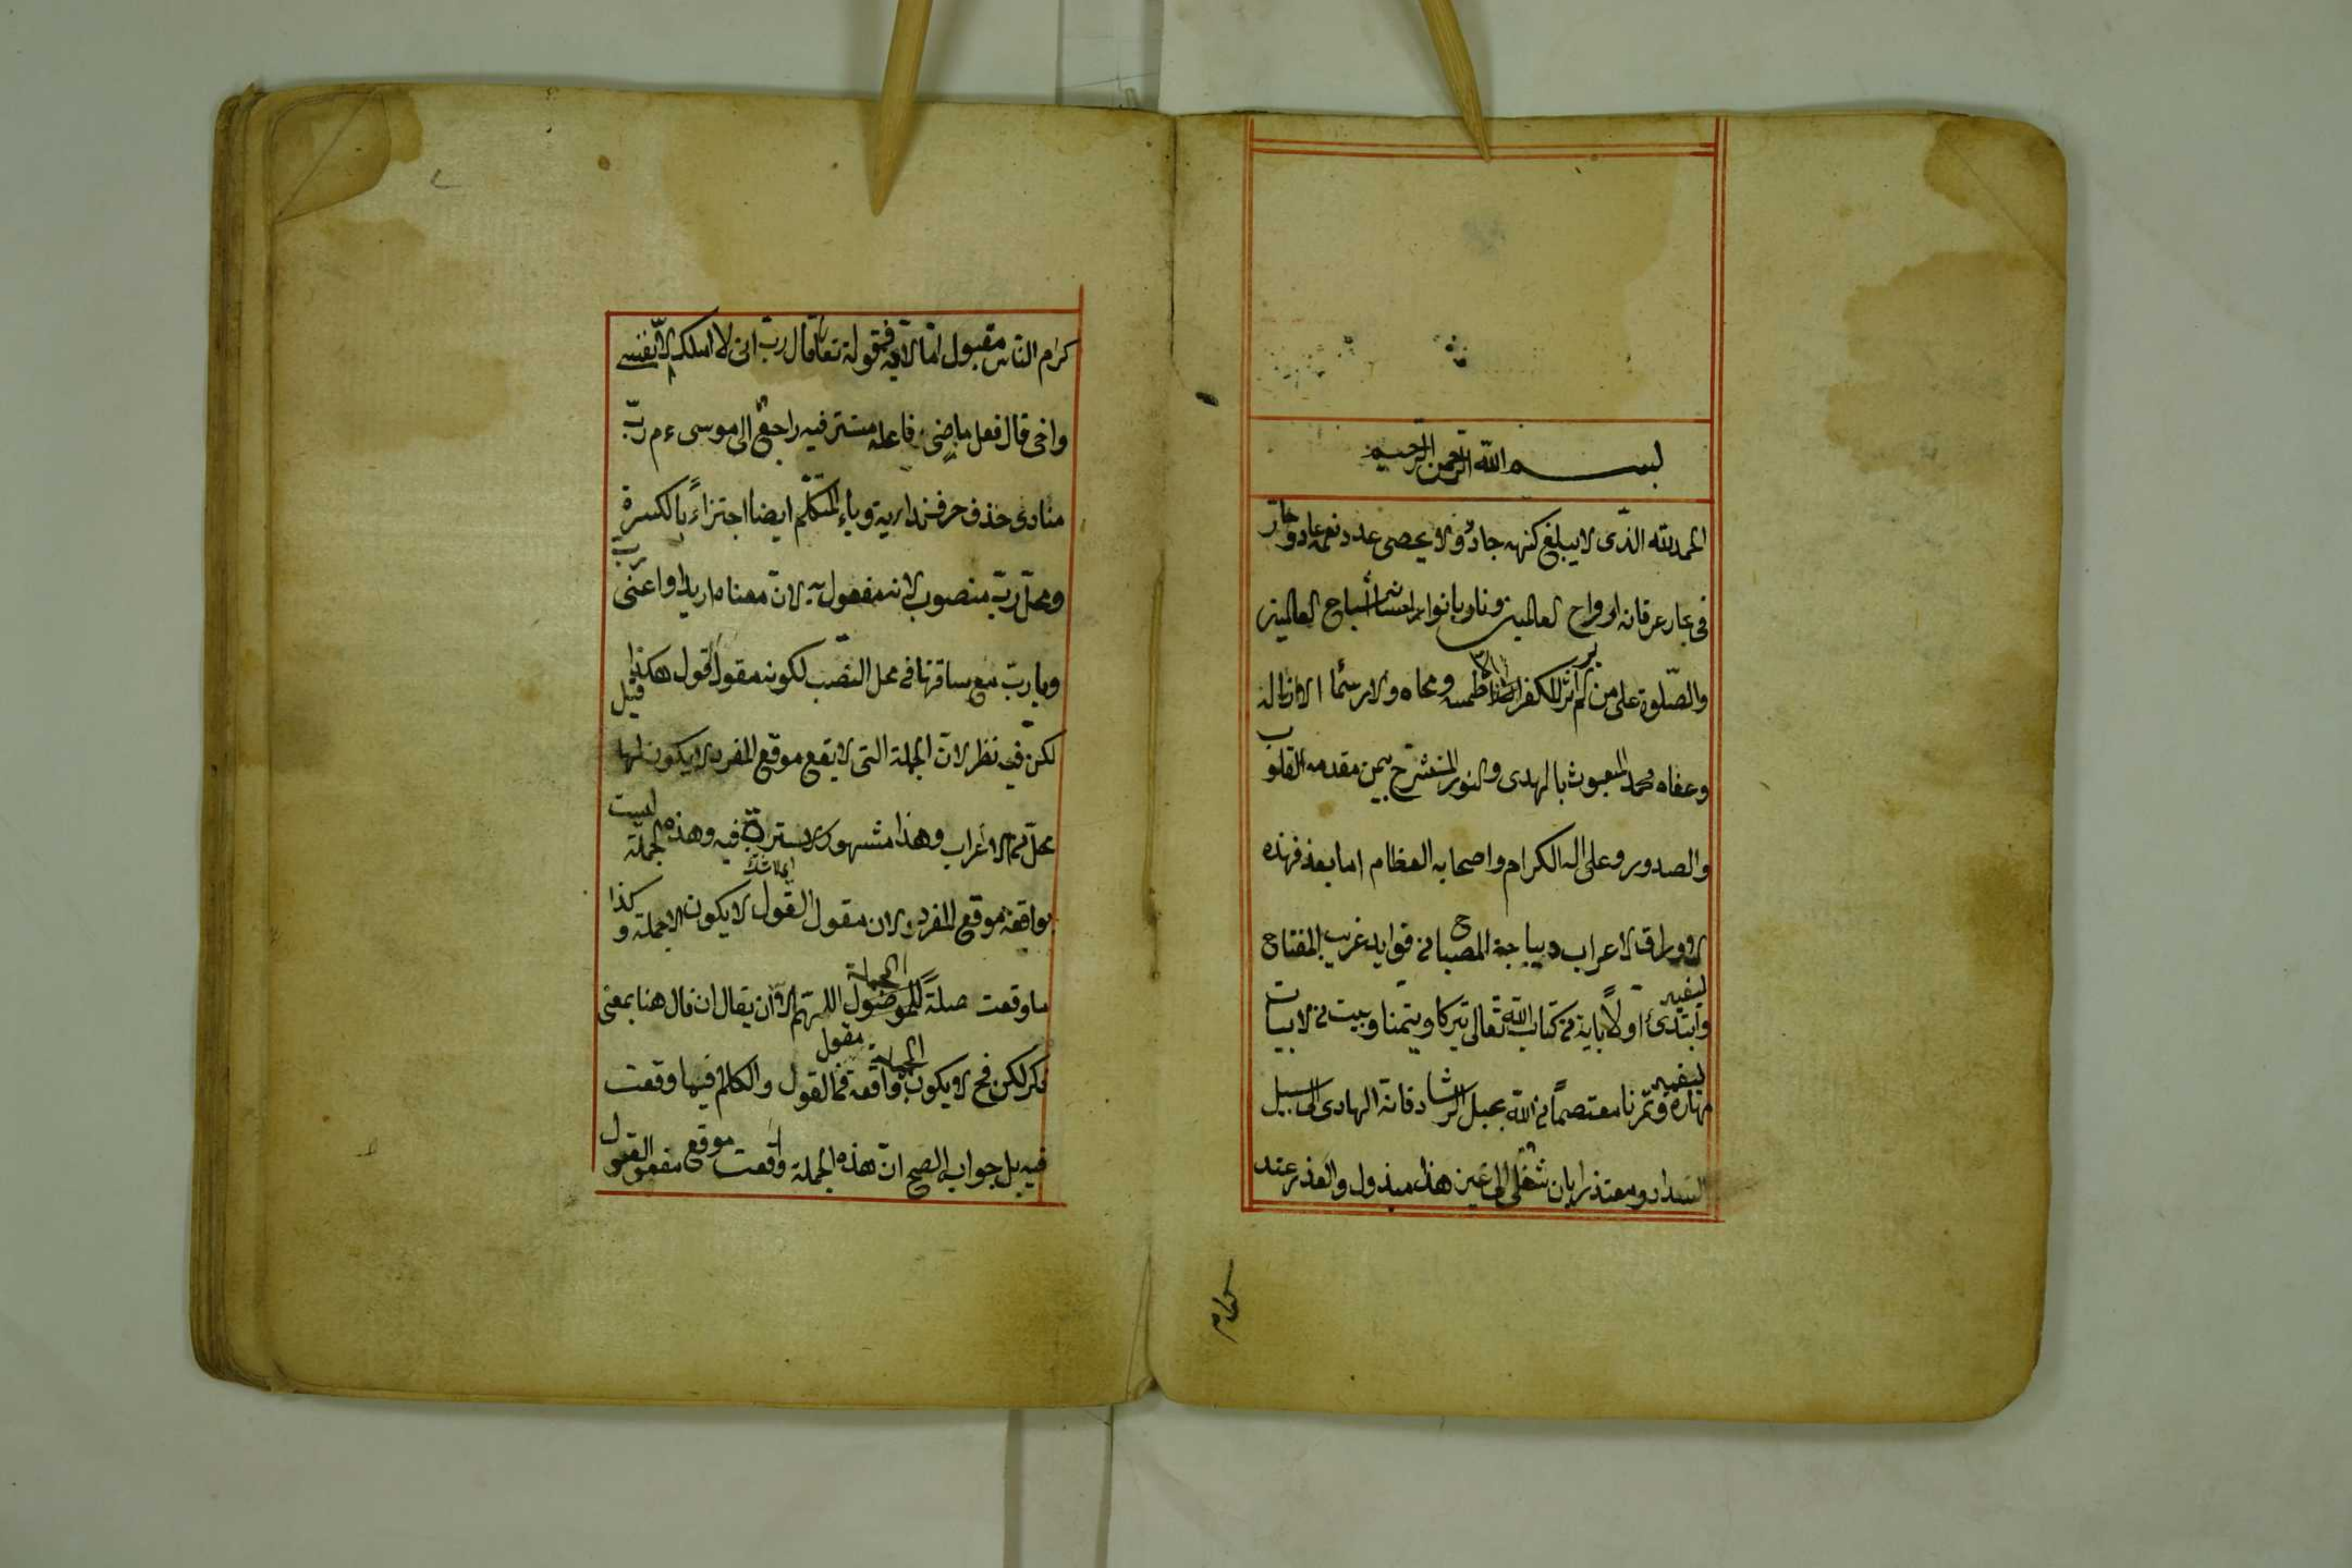 بسم الله الرحمن الرحيم
الحمد لله الذى لا يبلغ كنهه جاد ولا يحصى عدد نعمه عاد وحار
فى بحار عرفانه ارواح العالمين ونار بانوار احسانه أشباح العالمين
والصلوة على من لم ير اثرا للكفر الا طمسه ومحاه ولا رسما الا ازاله
وعفاه محمد المبعوث بالهدى والنور المنشرح بيمن مقدمه القلوب
والصدور وعلى اله الكرام واصحابه العظام اما بعد فهذه
الاوراق لاعراب ديباجة المصباح فوايد غريب المفتاح
وابتدئ اولاً باية من كتاب الله تعالى تبركا وتيمنا وبيت من الابيات
مهارة وتمرنا معتصماً من الله بحبل الرشاد فانه الهادى الى السبيل
السداد ومعتذرا بان شغلى الى غير هذا مبذول والعذر عند
كرام
كرام الناس مقبول اما الاية فقوله تعالى قال رب انى لا املك الا نفسى
واخى قال فعل ماضى فاعله مستتر فيه راجع الى موسى ءم ربّ
منادى حذف حرف ندايه وياء المتكلم ايضا اجتزاءً بالكسرة
ومحل رب منصوب لانه مفعول به لان معناه اريد او اعنى رب
ويا رب مع ساقتها فى محل النصب لكونه مقول القول هكذا قيل
لكن فيه نظر لان الجملة التى لا يقع موقع المفرد لا يكون لها
محل من الاعراب وهذا مشهور لا ستر فيه وهذه الجملة ليست
اى لا شك
بواقعة موقع المفرد لان مقول القول لا يكون الا جملة وكذا
ما وقعت صلةً للموصول اللهم الا ان يقال ان قال هنا بمعنى
الجملة
ذكر لكن فح لا يكون الجملة واقعة مقول القول والكلام فيها وقعت
فيه بل جواب الصح ان هذه الجملة واقعت موقع مفعول القول